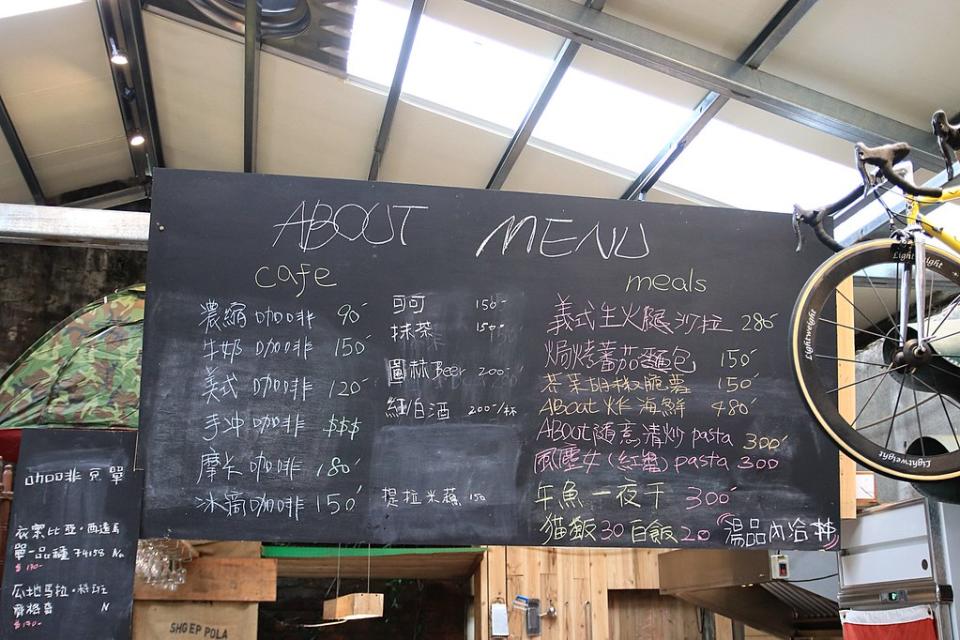 ABOUT MENU
cafe
濃縮咖啡 90
牛奶咖啡 150
美式咖啡 120
手沖咖啡 $$$
摩卡咖啡 180
冰滴咖啡 150
可可 150-
抹茶 150-
圖赫Beer 200-
紅/白酒 200/杯
提拉米蘇 150
meals
義式生火腿沙拉 280
焗烤蕃茄麵包 150
胡椒脆薯 150
ABout 炸海鮮 480
ABOUT隨意清炒 pasta 300
風塵女(紅醬) pasta 300
魚一夜干 300
貓飯30 白飯20 湯品內洽
咖啡豆單
衣索比亞·西達馬
單一品種 74158 N
$170-
瓜地馬拉
N
$170-
SHGEP POLA
Lightweight
Lightweight
Lightweight